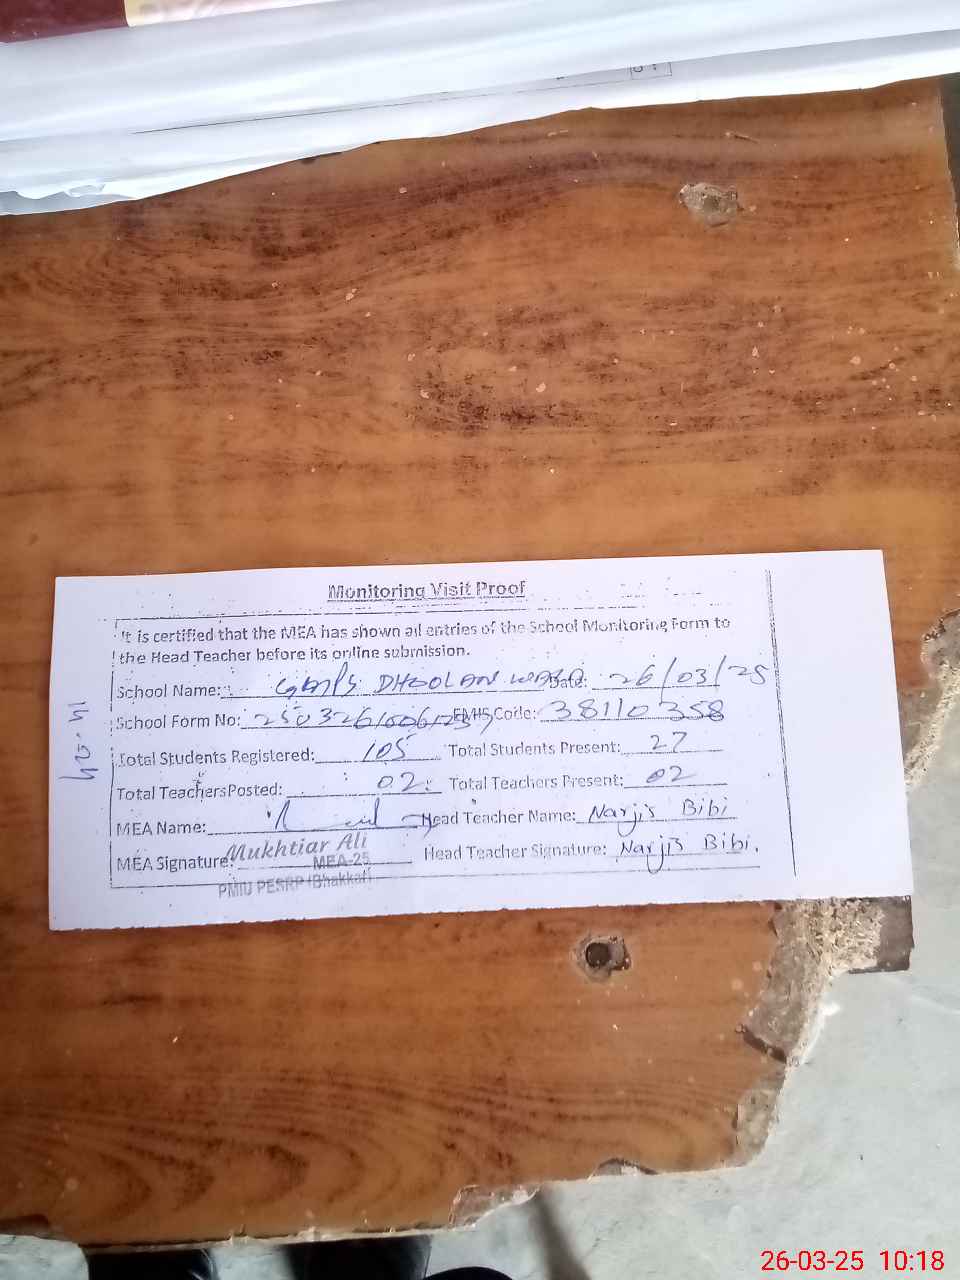 Monitoring Visit Proof
It is certified that the MEA has shown all entries of the School Monitoring Form to
the Head Teacher before its online submission.
School Name: GMPS DHOOLAN WALA Date: 26/03/25
School Form No: EMIS Code: 38110358
Total Students Registered: 105 Total Students Present: 27
Total Teachers Posted: 02 Total Teachers Present: 02
MEA Name: Head Teacher Name: Narjis Bibi
MEA Signature: Mukhtiar Ali Head Teacher Signature: Narjis Bibi.
MEA-25
PMIU PESRP (Bhakkar)
26-03-25 10:18